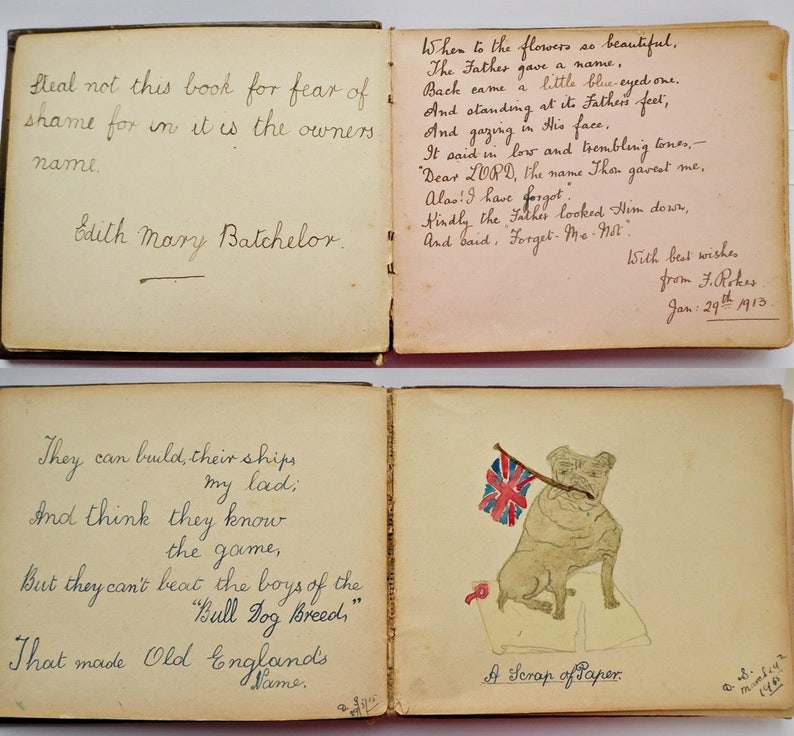 Steal not this book for fear of
shame for in it is the owners
name.
Edith Mary Batchelor.
When to the flowers so beautiful,
The Father gave a name,
Back came a little blue-eyed one,
And standing at its Father's feet,
And gazing in His face,
It said in low and trembling tones,—
"Dear LORD, the name Thou gavest me,
Alas! I have forgot".
Kindly the Father looked Him down,
And said, "Forget-Me-Not".
With best wishes
from F. Roker.
Jan: 29th 1913.
They can build, their ships
my lad;
And think they know
the game,
But they can't beat the boys of the
"Bull Dog Breed,"
That made Old England's
Name.
D. S.
A Scrap of Paper.
D. S.